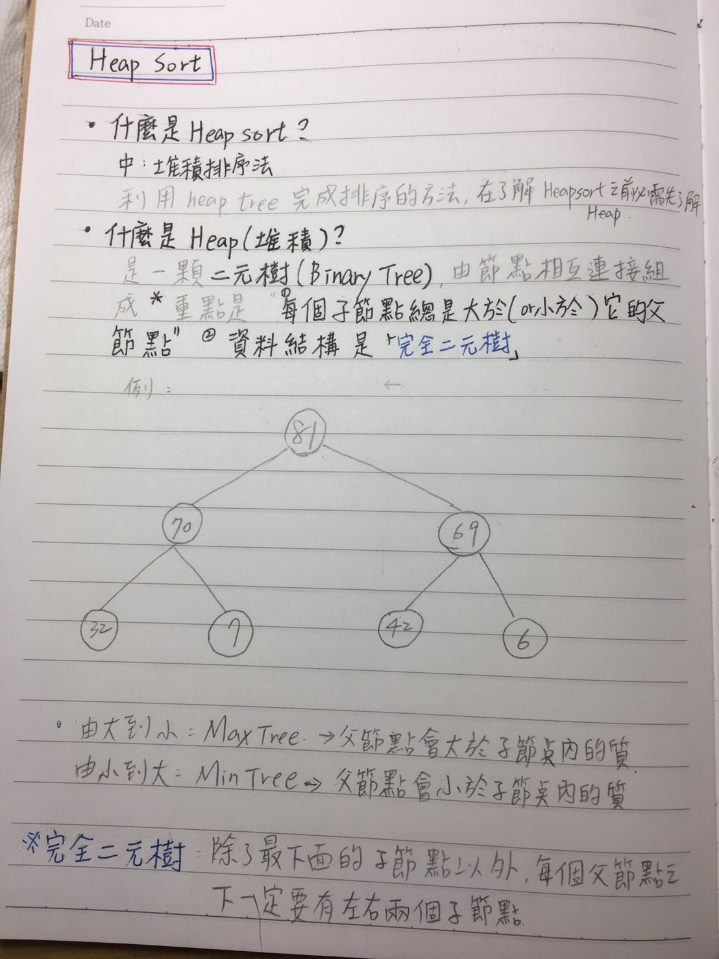 Date
Heap Sort
• 什麼是Heap sort?
中:堆積排序法
利用 heap tree 完成排序的方法, 在了解 Heapsort 之前必需先了解
Heap.
• 什麼是 Heap(堆積)?
是一顆二元樹(Binary Tree), 由節點相互連接組
成 * 重點是 "①每個子節點總是大於(or小於)它的父
節點" ② 資料結構是「完全二元樹」
例:
←
81
70 69
32 7 42 6
• 由大到小: Max Tree. → 父節點會大於子節点內的質
由小到大: Min Tree → 父節點會小於子節点內的質
※完全二元樹: 除了最下面的子節點以外, 每個父節點之
下一定要有左右兩個子節點